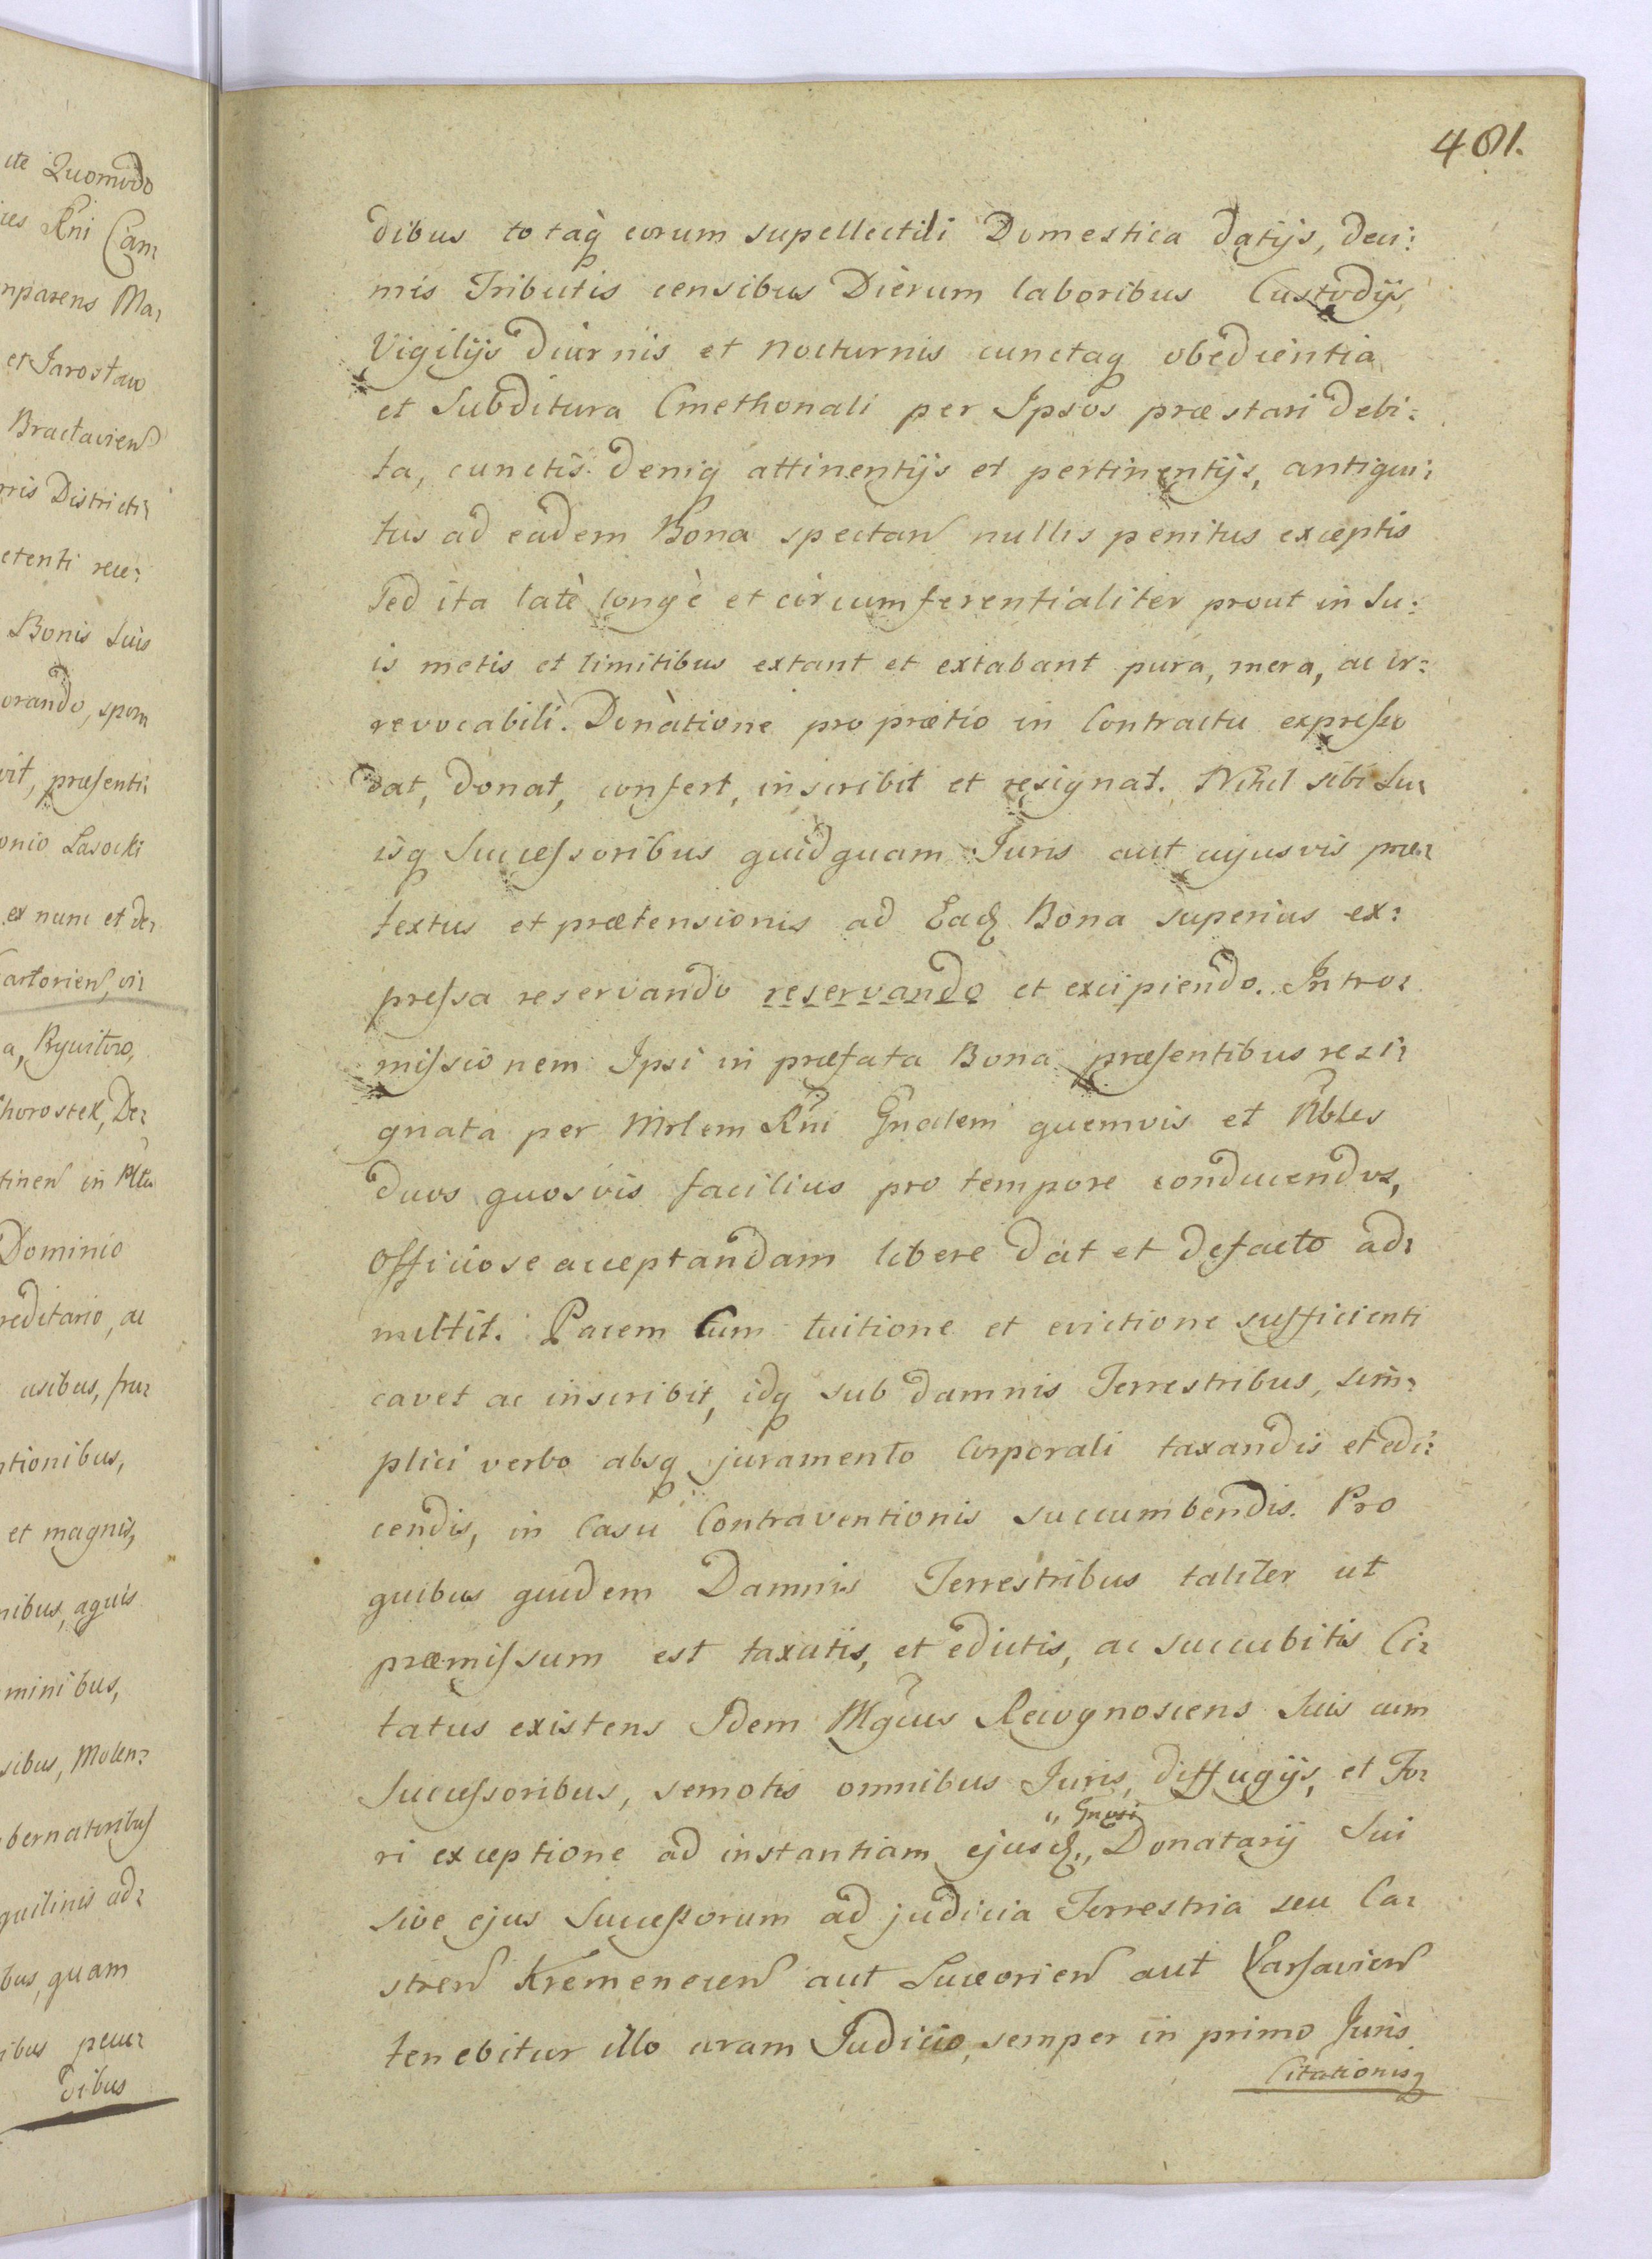 ite Quomodo
ies Rni Cam:
mparens Ma:
et Jarosław
Bractavien
rris Districti:
etenti rece:
Bonis Suis
orando, spem
vit, præsenti:
onio Lasocki
ex nunc et de:
artorien, vi:
a, Rywitow,
horostek, De:
tinen in Pltu
Dominio
reditario, ac
usibus, fru:
tionibus,
et magnis,
nibus, aquis
minibus,
sibus, Molen:
bernatoribus
quilinis ad:
bus, quam
ibus pecu:
dibus
401.
dibus totaq eorum supellectili Domestica datijs, deci:
mis Tributis censibus Dierum laboribus Custodijs,
Vigilijs diurnis et nocturnis cunctaq obedientia
et Subditura Cmethonali per Ipsos præstari debi:
ta, cunctis deniq attinentijs et pertinentijs, antiqui:
tus ad eadem Bona spectan nullis penitus exceptis
Sed ita latè longè et circumferentialiter prout in Su:
is metis et limitibus extant et extabant pura, mera, ac ir:
revocabili. Donàtione pro prætio in Contractu expresso
dat, donat, confert, inscribit et resignat. Nihil sibi Su:
isq Successoribus quidquam Juris aut cujusvis præ:
textus et prætensionis ad Eadq Bona superius ex:
pressa reservando reservando et excipiendo. Intro:
missionem Ipsi in præfata Bona præsentibus rezi:
gnata per Mrlem Rni Gnalem quemvis et Nbles
duos quosvis facilius pro tempore conducendos,
officiose acceptandam libere dat et defacto ad:
mittit. Pacem Cum tuitione et evictione sufficienti
cavet ac inscribit, idq sub damnis Terrestribus, sim:
plici verbo absq juramento Corporali taxandis et edi:
cendis, in Casu Contraventionis succumbendis. Pro
quibus quidem Damnis Terrestribus taliter ut
præmissum est taxatis, et edictis, ac succubitis Ci:
tatus existens Idem Mgcus Recognoscens Suis cum
Successoribus, semotis omnibus Juris, diffugijs, et Fo:
" Gnosi
ri exceptione ad instantiam ejusdq,, Donatarij Sui
sive ejus Successorum ad judicia Terrestria seu Ca:
stren Kremenecen aut Luceorien aut Varsavien
tenebitur illo coram Judicio, semper in primo Juris
Citationisq